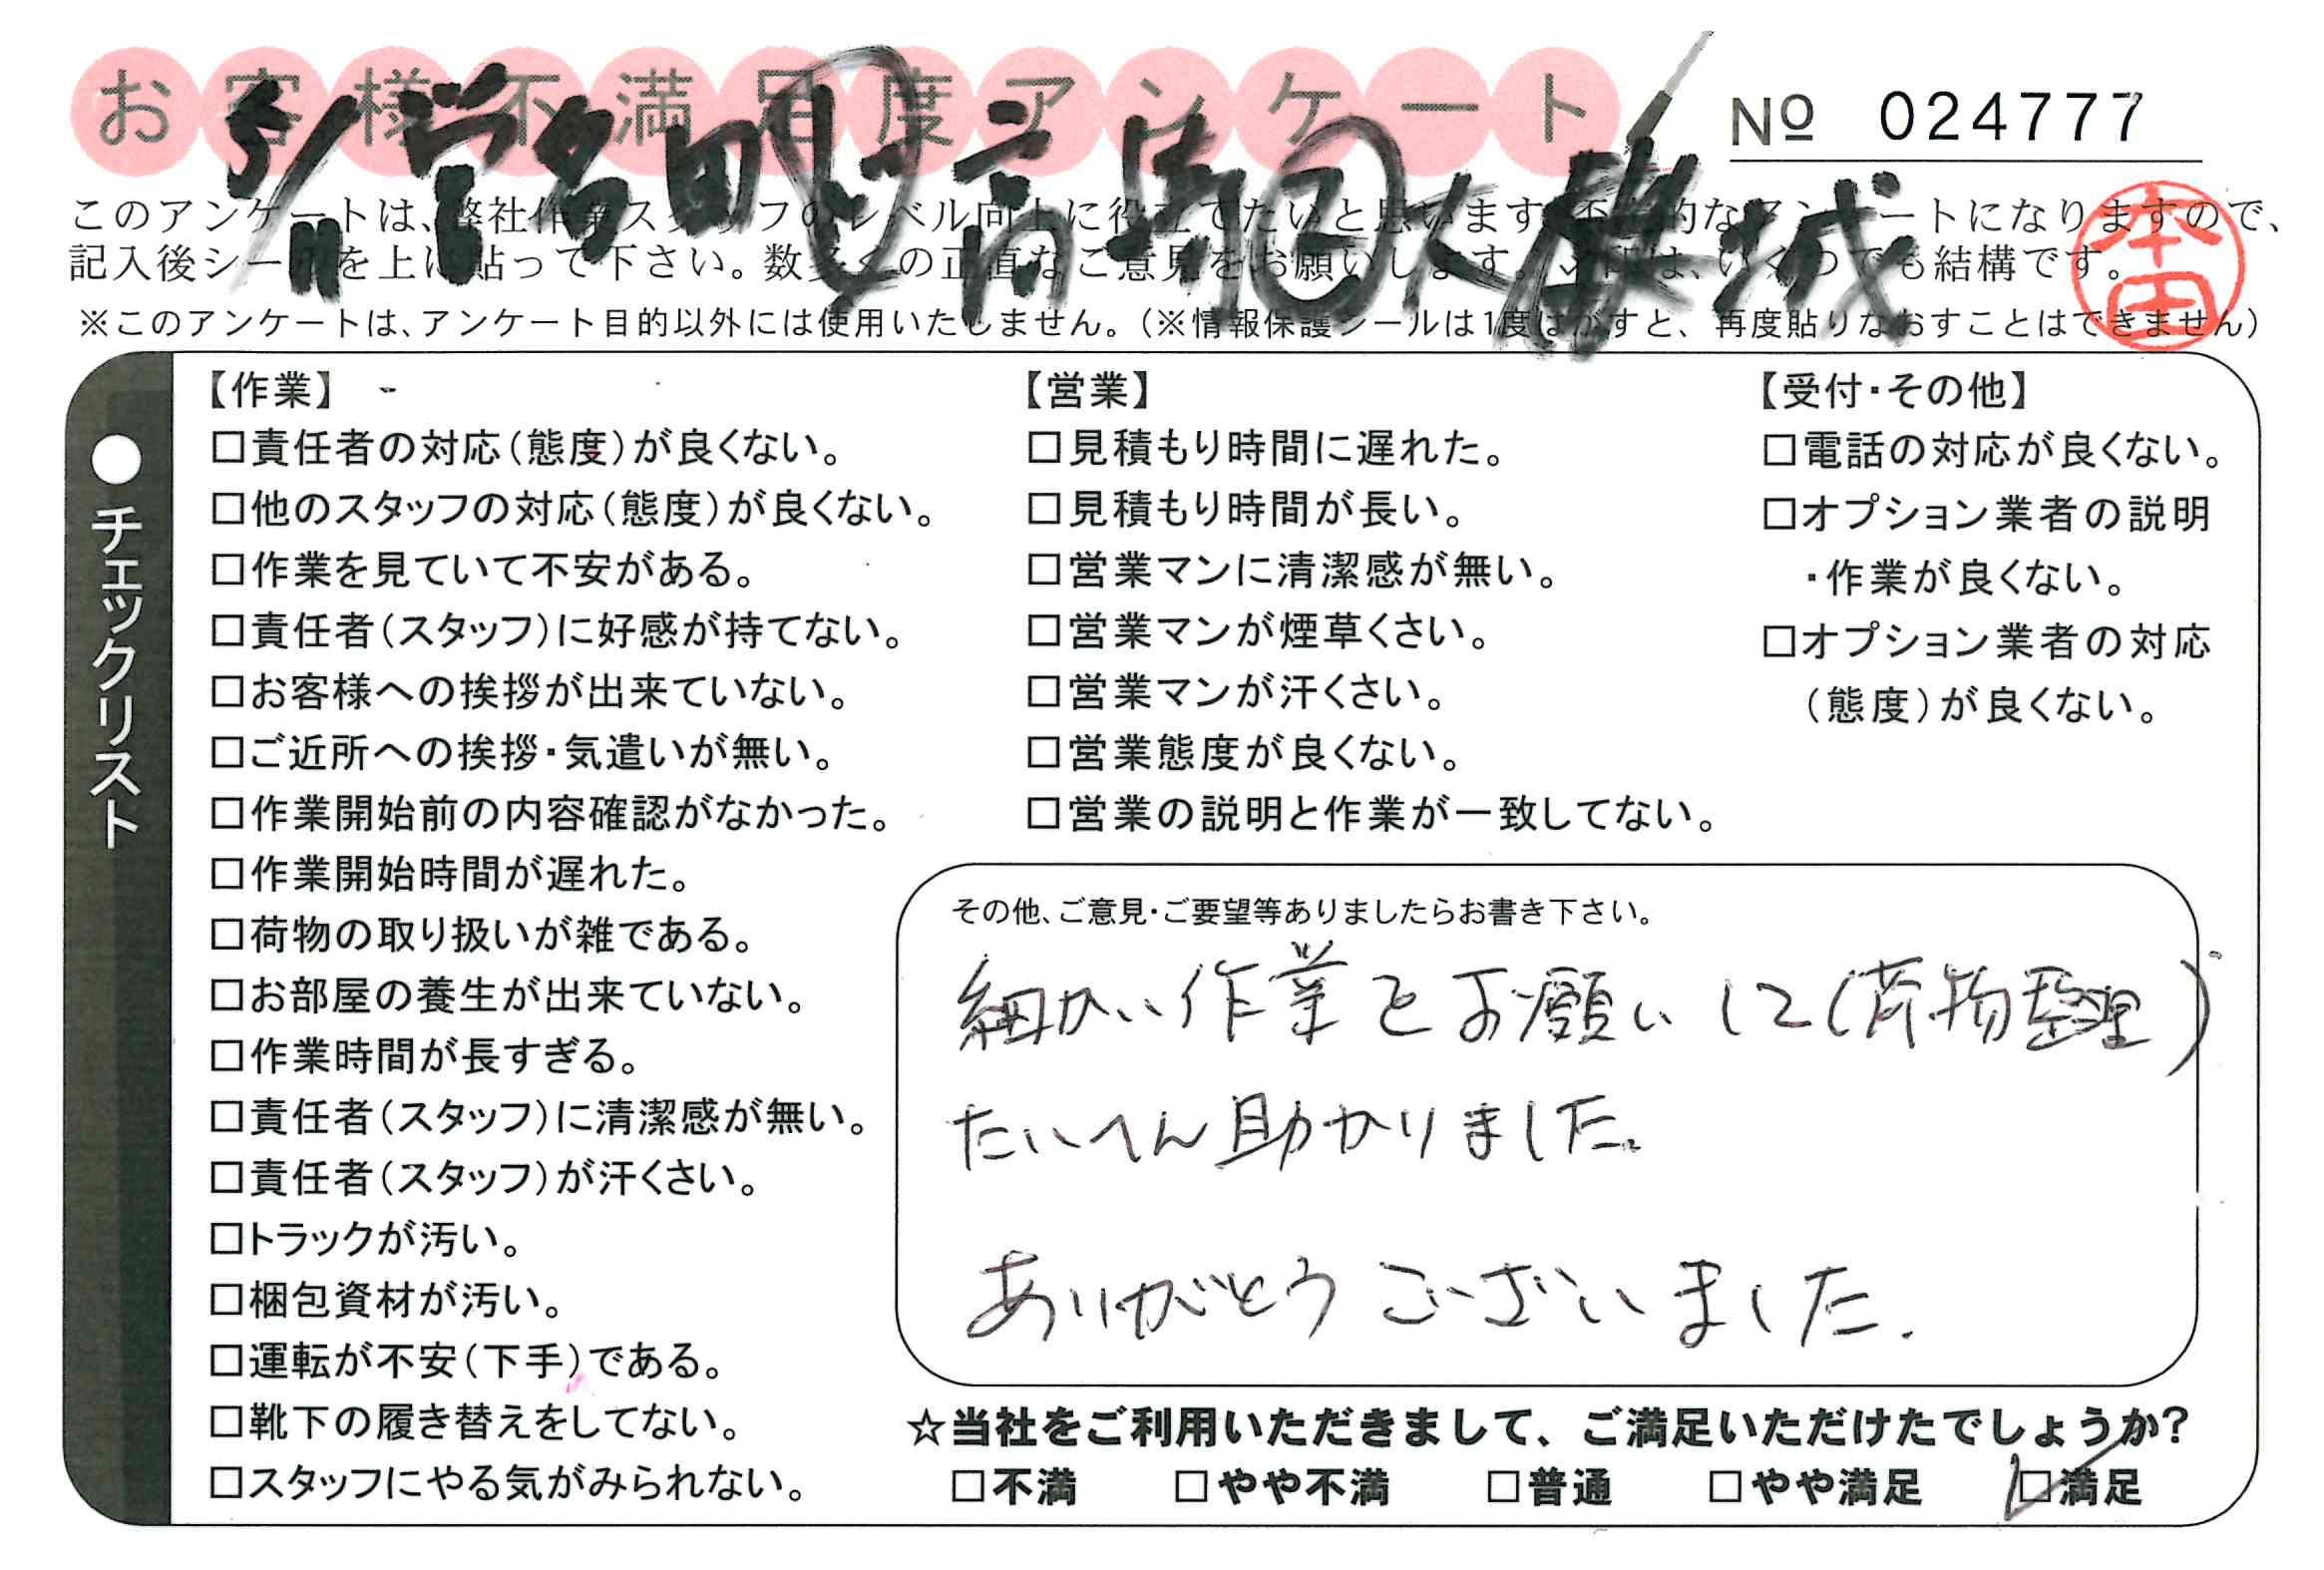 お客様不満足度アンケート
№ 024777
このアンケートは、弊社作業スタッフのレベル向上に役立てたいと思います。不 的なアンケートになりますので、
記入後シールを上に貼って下さい。数多くの正直なご意見をお願いします。✓印は、いくつでも結構です。
本田
※このアンケートは、アンケート目的以外には使用いたしません。(※情報保護シールは1度はがすと、再度貼りなおすことはできません)
●チェックリスト
【作業】
□責任者の対応(態度)が良くない。
□他のスタッフの対応(態度)が良くない。
□作業を見ていて不安がある。
□責任者(スタッフ)に好感が持てない。
□お客様への挨拶が出来ていない。
□ご近所への挨拶・気遣いが無い。
□作業開始前の内容確認がなかった。
□作業開始時間が遅れた。
□荷物の取り扱いが雑である。
□お部屋の養生が出来ていない。
□作業時間が長すぎる。
□責任者(スタッフ)に清潔感が無い。
□責任者(スタッフ)が汗くさい。
□トラックが汚い。
□梱包資材が汚い。
□運転が不安(下手)である。
□靴下の履き替えをしてない。
□スタッフにやる気がみられない。
【営業】
□見積もり時間に遅れた。
□見積もり時間が長い。
□営業マンに清潔感が無い。
□営業マンが煙草くさい。
□営業マンが汗くさい。
□営業態度が良くない。
□営業の説明と作業が一致してない。
【受付・その他】
□電話の対応が良くない。
□オプション業者の説明
・作業が良くない。
□オプション業者の対応
(態度)が良くない。
その他、ご意見・ご要望等ありましたらお書き下さい。
細かい作業をお願いして(荷物整理)
たいへん助かりました。
ありがとうございました.
☆当社をご利用いただきまして、ご満足いただけたでしょうか?
□不満 □やや不満 □普通 □やや満足 ☑満足